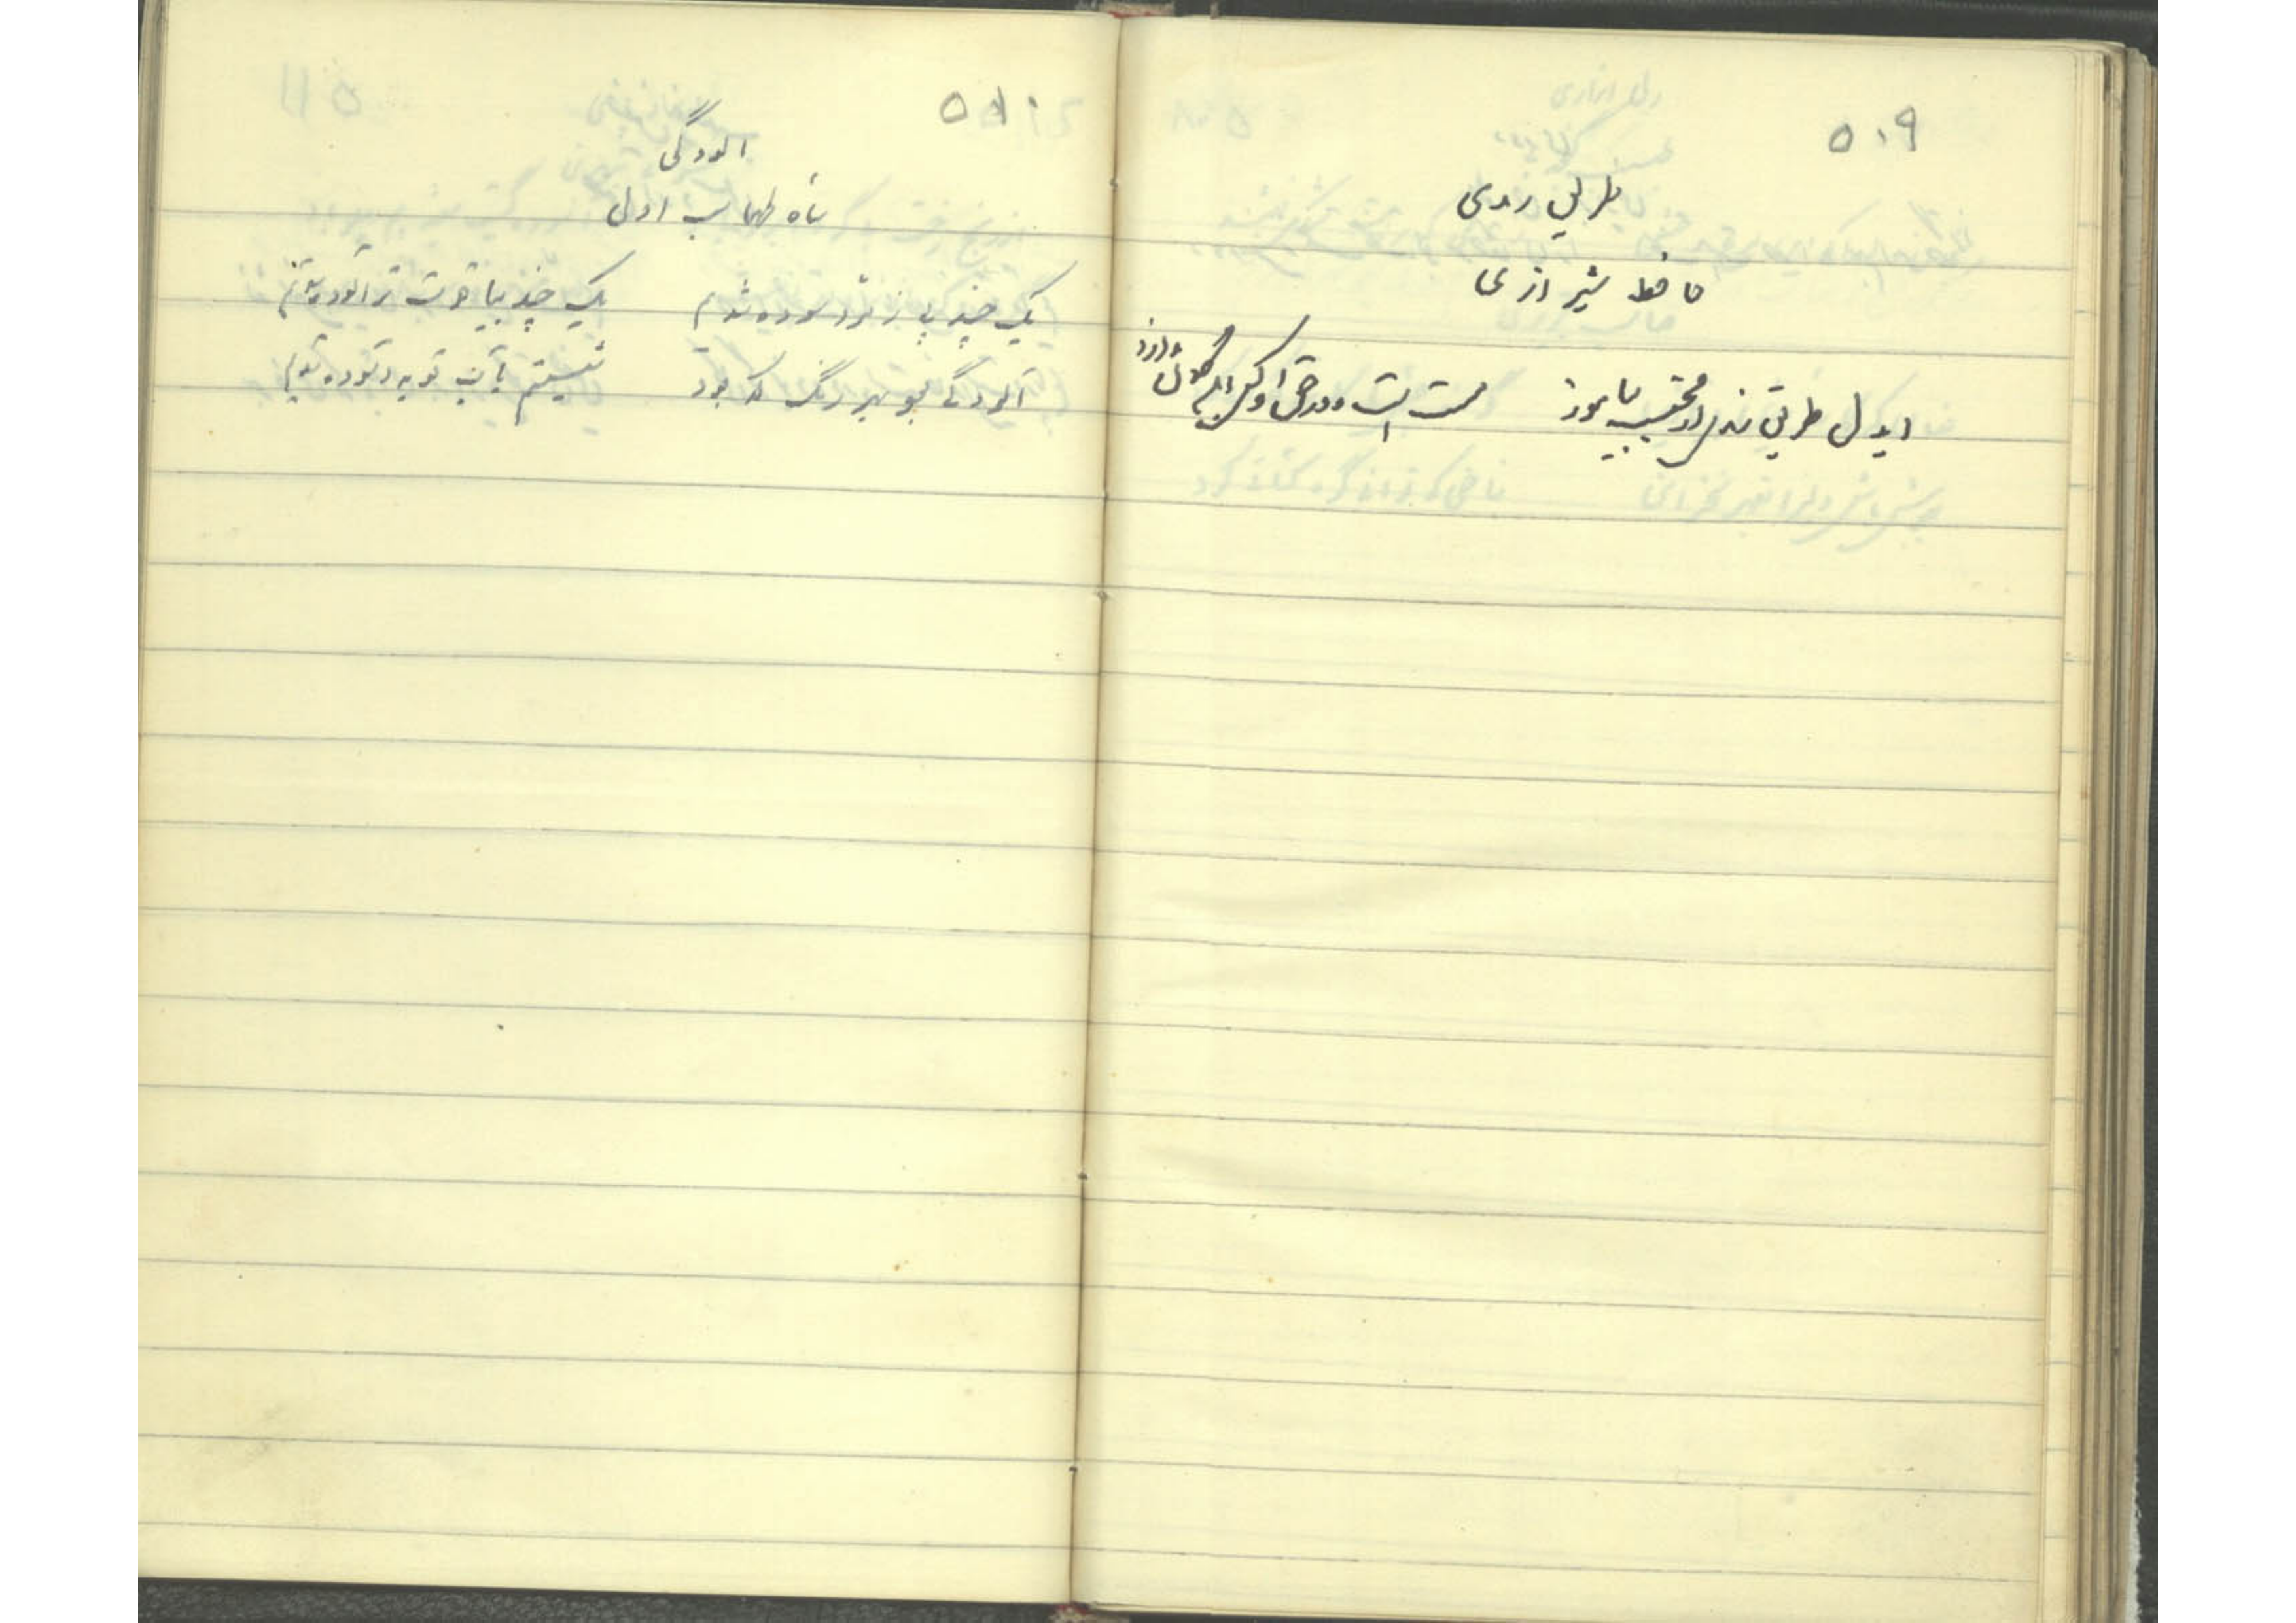 ۵۰۹
طریق رندی
حافظ شیرازی
ایدل طریق رندی از محتسب بیاموز مست است و در حق او کس این گمان ندارد
۵۱۰
آلودگی
شاه طهماسب اول
یک چند پی زمرد سوده شدیم یک چند بیاقوت تر آلوده شدیم
آلودگی بود بهر رنگ که بود شستیم بآب توبه و آسوده شدیم